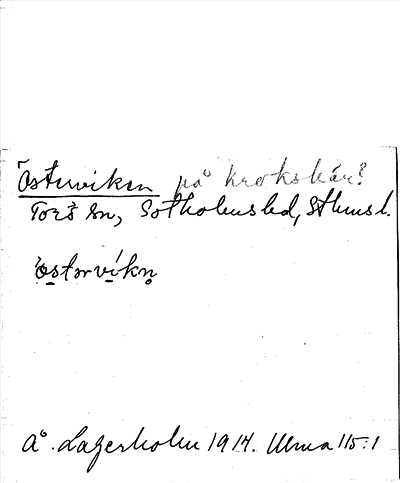 Österviken på Krokskär?
Torö sn, Sotholms hd, Sthms l.
ö̀stərvíkn̥
Å. Lagerholm 1914. Ulma 115:1